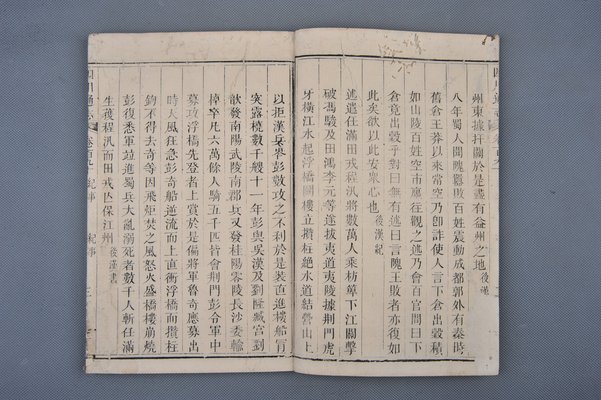 州東據扞關於是盡有益州之地後漢
八年蜀人聞隗囂死百姓震動成都郭外有秦時
舊倉王莽以來常空乃卽詐使人言下倉出穀積
如山陵百姓空市廛往觀之述乃會百官問曰下
倉竟出穀乎對曰無有述曰言隗王敗者亦復如
此矣欲以此安衆心也後漢紀
述遣任滿田戎程汎將數萬人乘枋箄下江關擊
破馮駿及田鴻李元等遂拔夷道夷陵據荆門虎
牙橫江水起浮橋關樓立攢柱絶水道結營山上
以拒漢兵岑彭數攻之不利於是裝直進樓船冒
突露橈數千艘十一年彭與吳漢及劉隆臧宫劉
歆發南陽武陵南郡兵又發桂陽零陵長沙委輸
棹卒凡六萬餘人騎五千匹皆會荆門彭令軍中
募攻浮橋先登者上賞於是偏將軍魯奇應募出
時大風狂急彭奇船逆流而上直衝浮橋而攢柱
鉤不得去奇等因飛炬焚之風怒火盛橋樓崩燒
彭復悉軍並進蜀兵大亂溺死者數千人斬任滿
生獲程汎而田戎亡保江州後漢書
四川通志
卷百
紀事
紀事